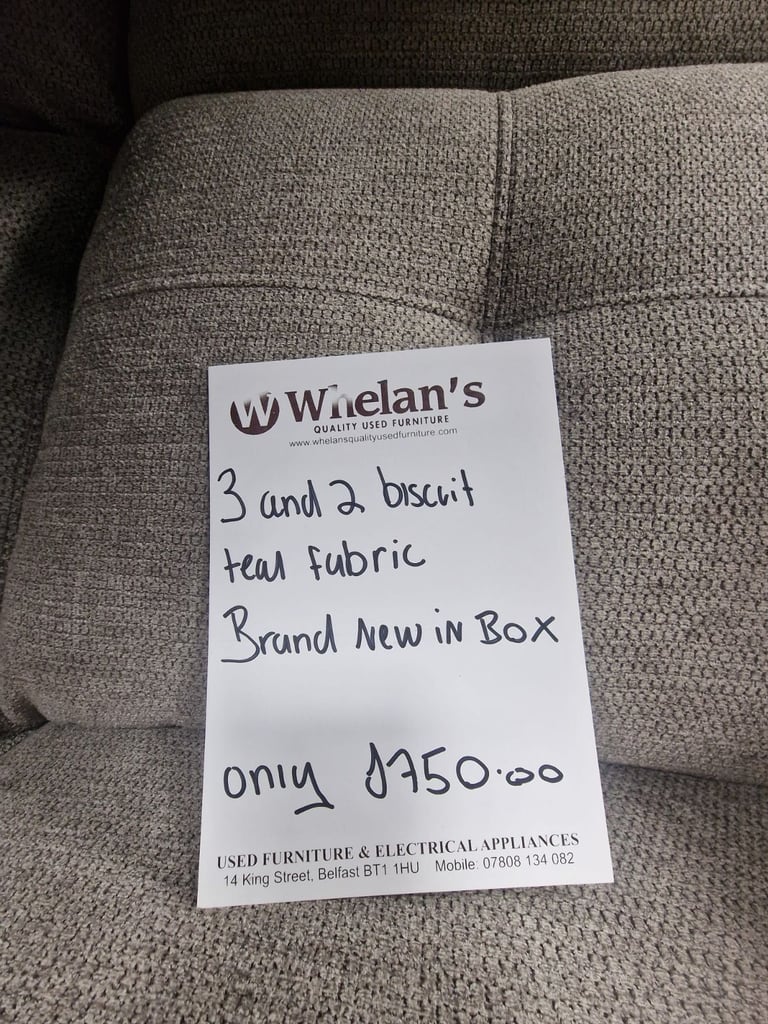 W Whelan's
QUALITY USED FURNITURE
www.whelansqualityusedfurniture.com
3 and 2 biscuit
teal fabric
Brand New in Box
only £750.00
USED FURNITURE & ELECTRICAL APPLIANCES
14 King Street, Belfast BT1 1HU Mobile: 07808 134 082